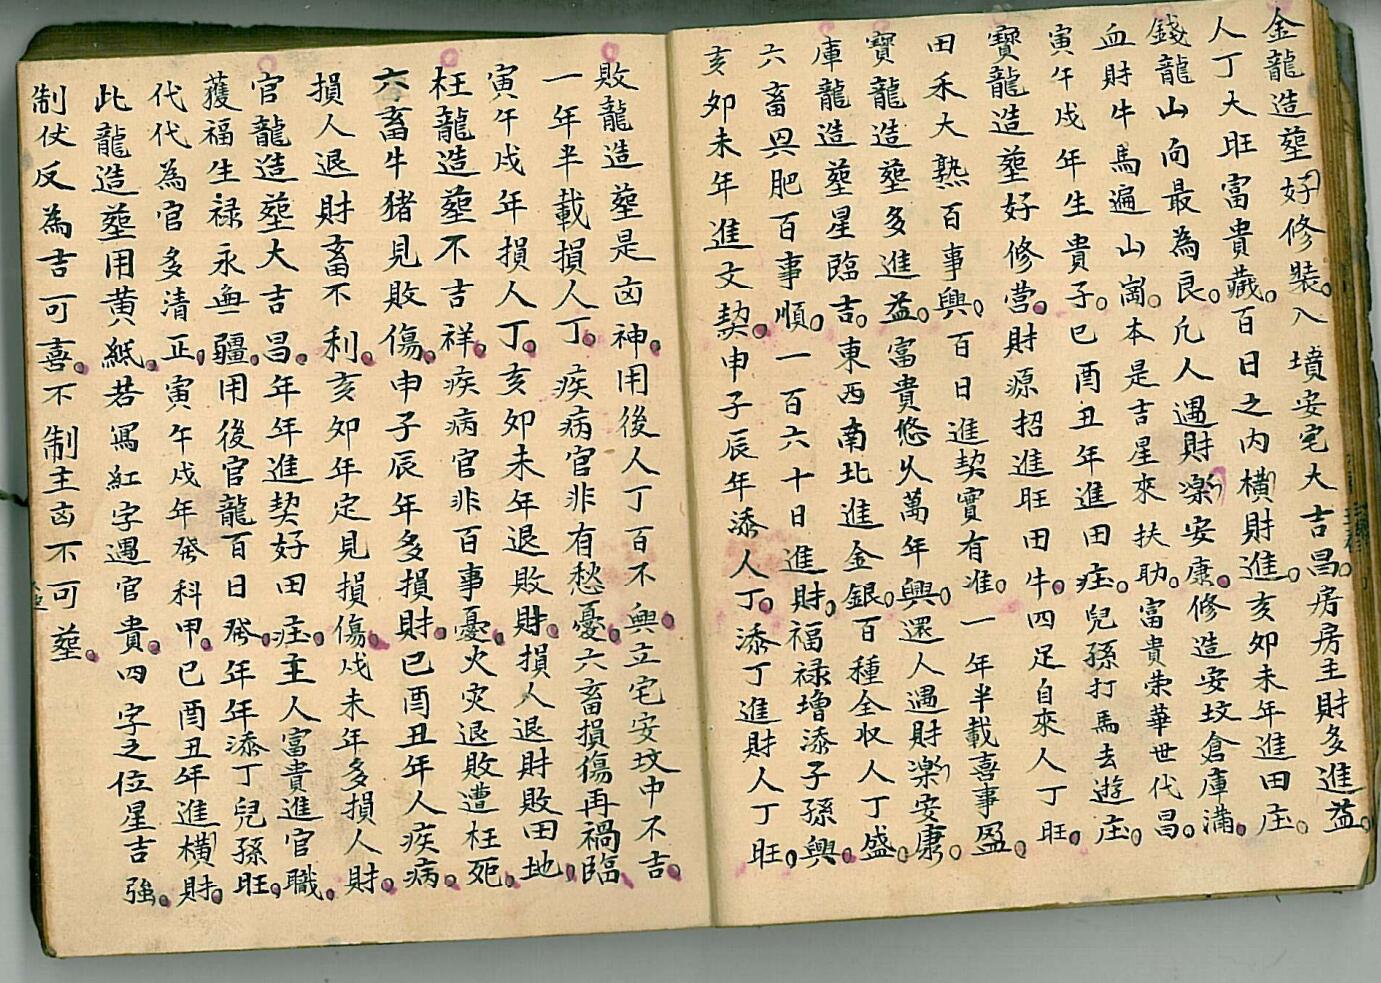 金龍造塟好修裝。入墳安宅大吉昌。房房主財多進益。
人丁大旺富貴藏。百日之内横財進。亥卯未年進田庄。
錢龍山向最為良。凢人遇財樂安康。修造安坟倉庫滿。
血財牛馬遍山崗。本是吉星來扶助。富貴荣華世代昌。
寅午戌年生貴子。巳酉丑年進田庄。兒孫打馬去遊庄。
寳龍造塟好修营。財源招進旺田牛。四足自來人丁旺。
田禾大熟百事興。百日進契實有准。一年半載喜事盈。
寳龍造塟多進益。富貴悠久萬年興。還人遇財樂安康。
庫龍造塟星臨吉。東西南北進金銀。百種全収人丁盛。
六畜具肥百事順。一百六十日進財。福禄增添子孫興。
亥卯未年進文契。申子辰年添人丁。添丁進財人丁旺。
敗龍造塟是凶神。用後人丁百不興。立宅安坟中不吉。
一年半載損人丁。疾病官非有愁憂。六畜損傷再禍臨
寅午戌年損人丁。亥卯未年退敗財。損人退財敗田地。
枉龍造塟不吉祥。疾病官非百事憂。火灾退敗遭枉死。
六畜牛猪見敗傷。申子辰年多損財。巳酉丑年人疾病。
損人退財畜不利。亥卯年定見損傷。戌未年多損人財。
官龍造塟大吉昌。年年進契好田庄。主人富貴進官職。
獲福生禄永無疆。用後官龍百日發。年年添丁兒孫旺。
代代為官多清正。寅午戌年發科甲。巳酉丑年進横財。
此龍造塟用黄紙。若寫紅字遇官貴。四字之位星吉強。
制伏反為吉可喜。不制主凶不可塟。